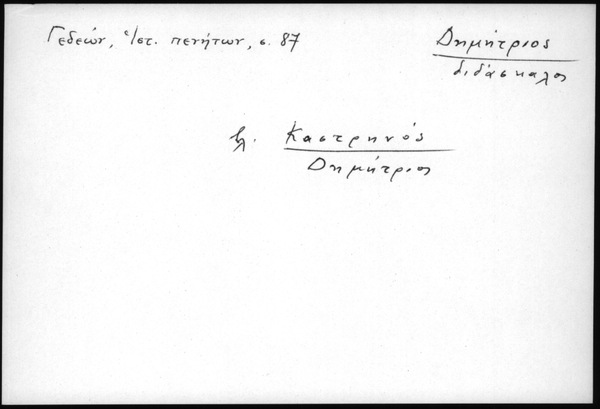 Γεδεών, Ἱστ. πενήτων, σ. 87
Δημήτριος
διδάσκαλος
βλ. Καστρηνός
Δημήτριος